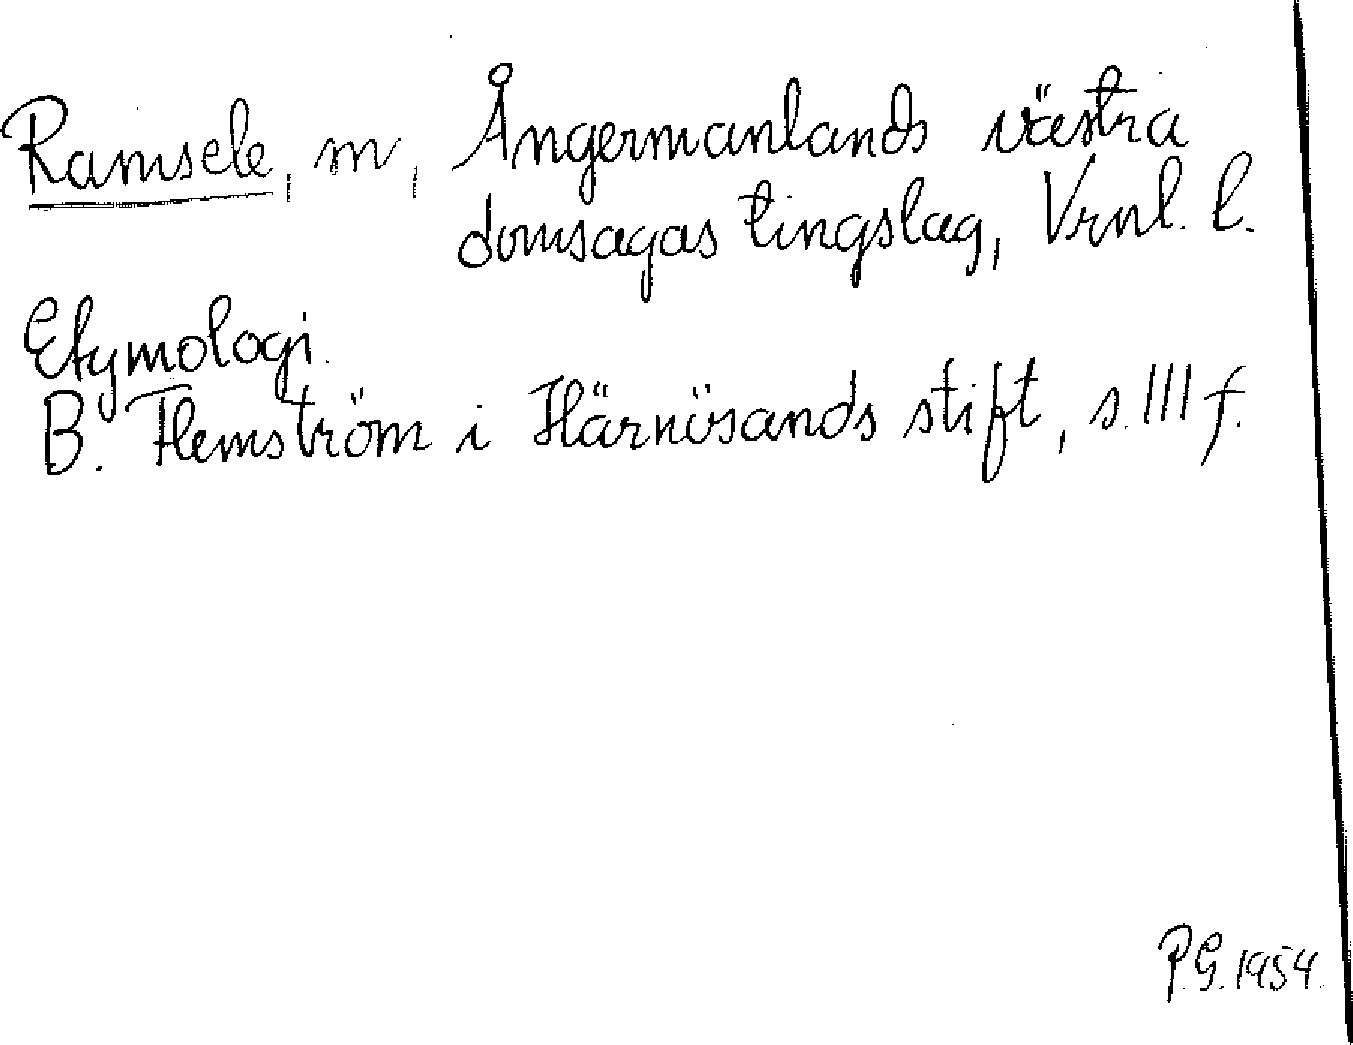 Ramsele, m, Ångermanlands västra
domsagas tingslag, Vrnl. l.
Etymologi.
B. Flemström i Härnösands stift, s. 111 f.
P.G. 1954.